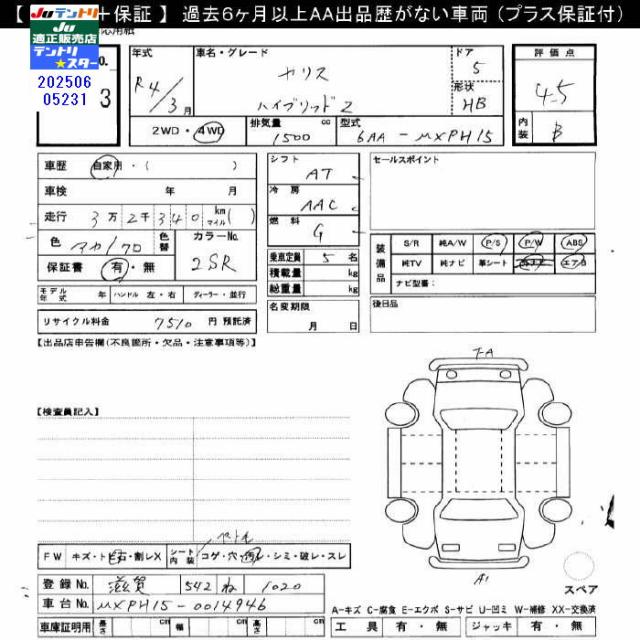 【 ＋保証 】 過去6ヶ月以上AA出品歴がない車両（プラス保証付）
Juテントリ
Ju
適正販売店
テントリ
★スター
応用紙
202506
05231
No.
3
年式
R4/3月
車名・グレード
ヤリス
ハイブリッドZ
ドア
5
形状
HB
評価点
4.5
内装
B
2WD・4WD
排気量
1500 cc
型式
6AA-MXPH15
車歴 自家用・( )
車検 年 月
走行 3万2千340 km マイル( )
色 アカ/クロ 色替
カラーNo. 2SR
保証書 有・無
モデル年式 年 ハンドル 左・右 ディーラー・並行
リサイクル料金 7510 円 預託済
シフト AT
冷房 AAC
燃料 G
乗車定員 5 名
積載量 kg
総重量 kg
名変期限 月 日
セールスポイント
装備品
S/R 純A/W P/S P/W ABS
純TV 純ナビ 革シート エアB
ナビ型番:
後日品
【出品店申告欄(不良箇所・欠品・注意事項等)】
【検査員記入】
FW キズ・ト石・割レX シート内装 コゲ・穴・シミ・破レ・スレ
登録No. 滋賀 542 ね 1020
車台No. MXPH15-0014946
車庫証明用 長さ cm 幅 cm 高さ cm
A1
スペア
A-キズ C-腐食 E-エクボ S-サビ U-凹ミ W-補修 XX-交換済
工具 有・無 ジャッキ 有・無